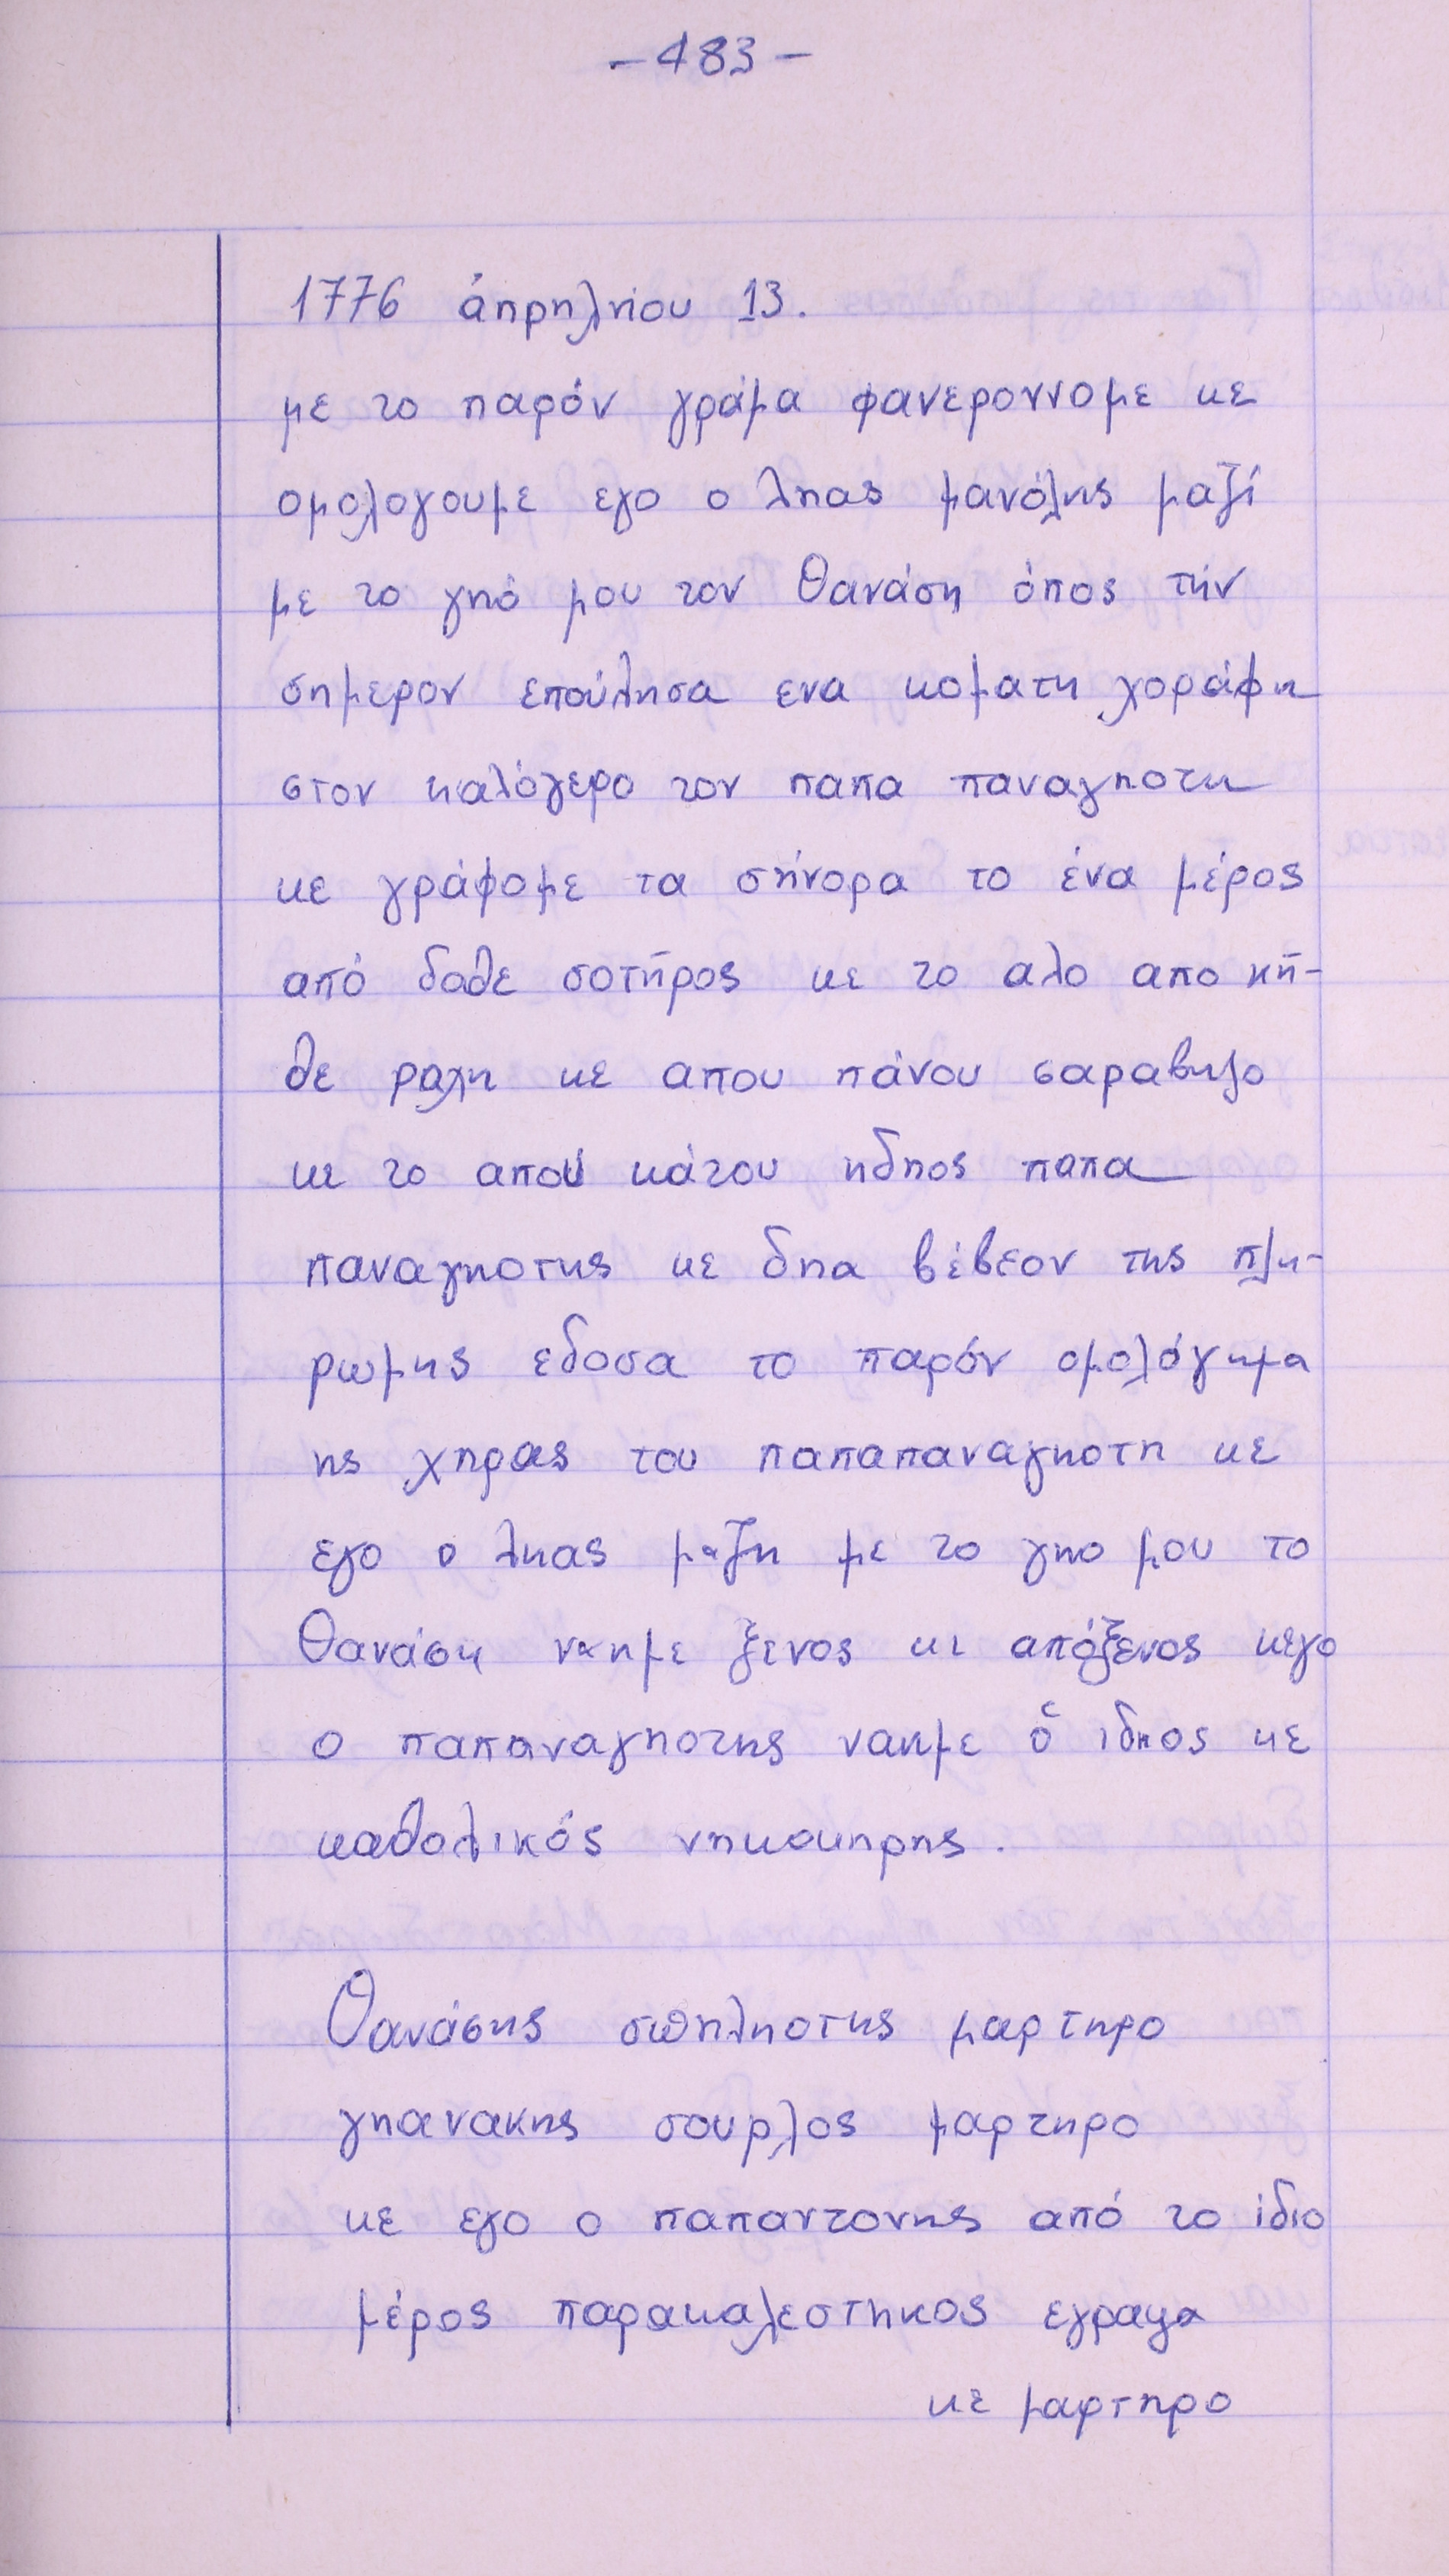 - 483 -
1776 άπρηληίου 13.
με το παρόν γράμα φανερονομε κε
ομολογουμε εγο ο ληας μανόλης μαζί
με το γηό μου τον Θανάση όπος τήν
σημερον επούλησα ενα κοματη χοράφη
στον καλόγερο τον παπα παναγηοτη
κε γράφομε τα σήνορα το ένα μέρος
από δοθε σοτήρος κε το αλο απο κή-
θε ραλη κε απου πάνου σαραβηζο
κε το απού κάτου ηδηος παπα
παναγηοτης κε δηα βέβεον της πλη-
ρωμης εδοσα το παρόν ομολόγημα
ης χηρας του παπαπαναγηοτη κε
εγο ο ληας μαζη με το γηο μου το
Θανάση ναημε ξενος κε απόξενος κεγο
ο παπαναγηοτης ναημε ὅ ιδηος κε
καθολικός νηκοκηρης.
Θανάσης σπηληοτης μαρτηρο
γηανακης σουρλος μαρτηρο
κε εγο ο παπαντονης από το ίδιο
μέρος παρακαλεστηκος εγραψα
κε μαρτηρο